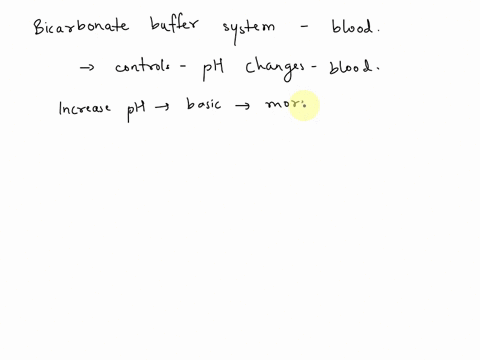 Bicarbonate buffer system - blood.
→ controls - pH changes - blood.
Increase pH → basic → mor